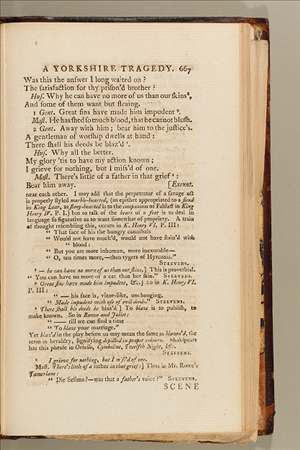 A YORKSHIRE TRAGEDY. 667
Was this the anſwer I long waited on?
The ſatisfaction for thy priſon'd brother?
Huſ. Why he can have no more of us than our ſkins⁸,
And ſome of them want but fleaing.
1 Gent. Great ſins have made him impudent⁹.
Maſt. He has ſhed ſo much blood, that he cannot bluſh.
2 Gent. Away with him; bear him to the juſtice's.
A gentleman of worſhip dwells at hand:
There ſhall his deeds be blaz'd¹.
Huſ. Why all the better.
My glory 'tis to have my action known;
I grieve for nothing, but I miſs'd of one.
Maſt. There's little of a father in that grief²:
Bear him away. [Exeunt.
near each other. I may add that the perpetrator of a ſavage act
is properly ſtyled marble-hearted, (an epithet appropriated to a fiend
in King Lear, as flinty-hearted is to the companions of Falſtaff in King
Henry IV. P. I.) but to talk of the heart of a ſtar is to deal in
language ſo figurative as to want ſomewhat of propriety. A train
of thought reſembling this, occurs in K. Henry VI. P. III:
“ That face of his the hungry cannibals
“ Would not have touch'd, would not have ſtain'd with
“ blood:
“ But you are more inhuman, more inexorable—
“ O, ten times more,—than tygers of Hyrcania.”
STEEVENS.
⁸ — he can have no more of us than our ſkins,] This is proverbial.
“ You can have no more of a cat than her ſkin.” STEEVENS.
⁹ Great ſins have made him impudent, &c.] So in K. Henry VI.
P. III:
“ — thy face is, vizor-like, unchanging,
“ Made impudent with uſe of evil deeds.” STEEVENS.
¹ There ſhall his deeds be blaz'd.] To blaze is to publiſh, to
make known. So in Romeo and Juliet:
“ —— till we can find a time
“ To blaze your marriage.”
Yet blaz'd in the play before us may mean the ſame as blazon'd, the
term in heraldry, ſignifying depicted in proper colours. Shakſpeare
has this phraſe in Othello, Cymbeline, Twelfth Night, &c.
STEEVENS.
² I grieve for nothing, but I miſs'd of one.
Maſt. There's little of a father in that grief:] Thus in Mr. Rowe's
Tamerlane:
“ Die Selima?—was that a father's voice?” STEEVENS.
SCENE